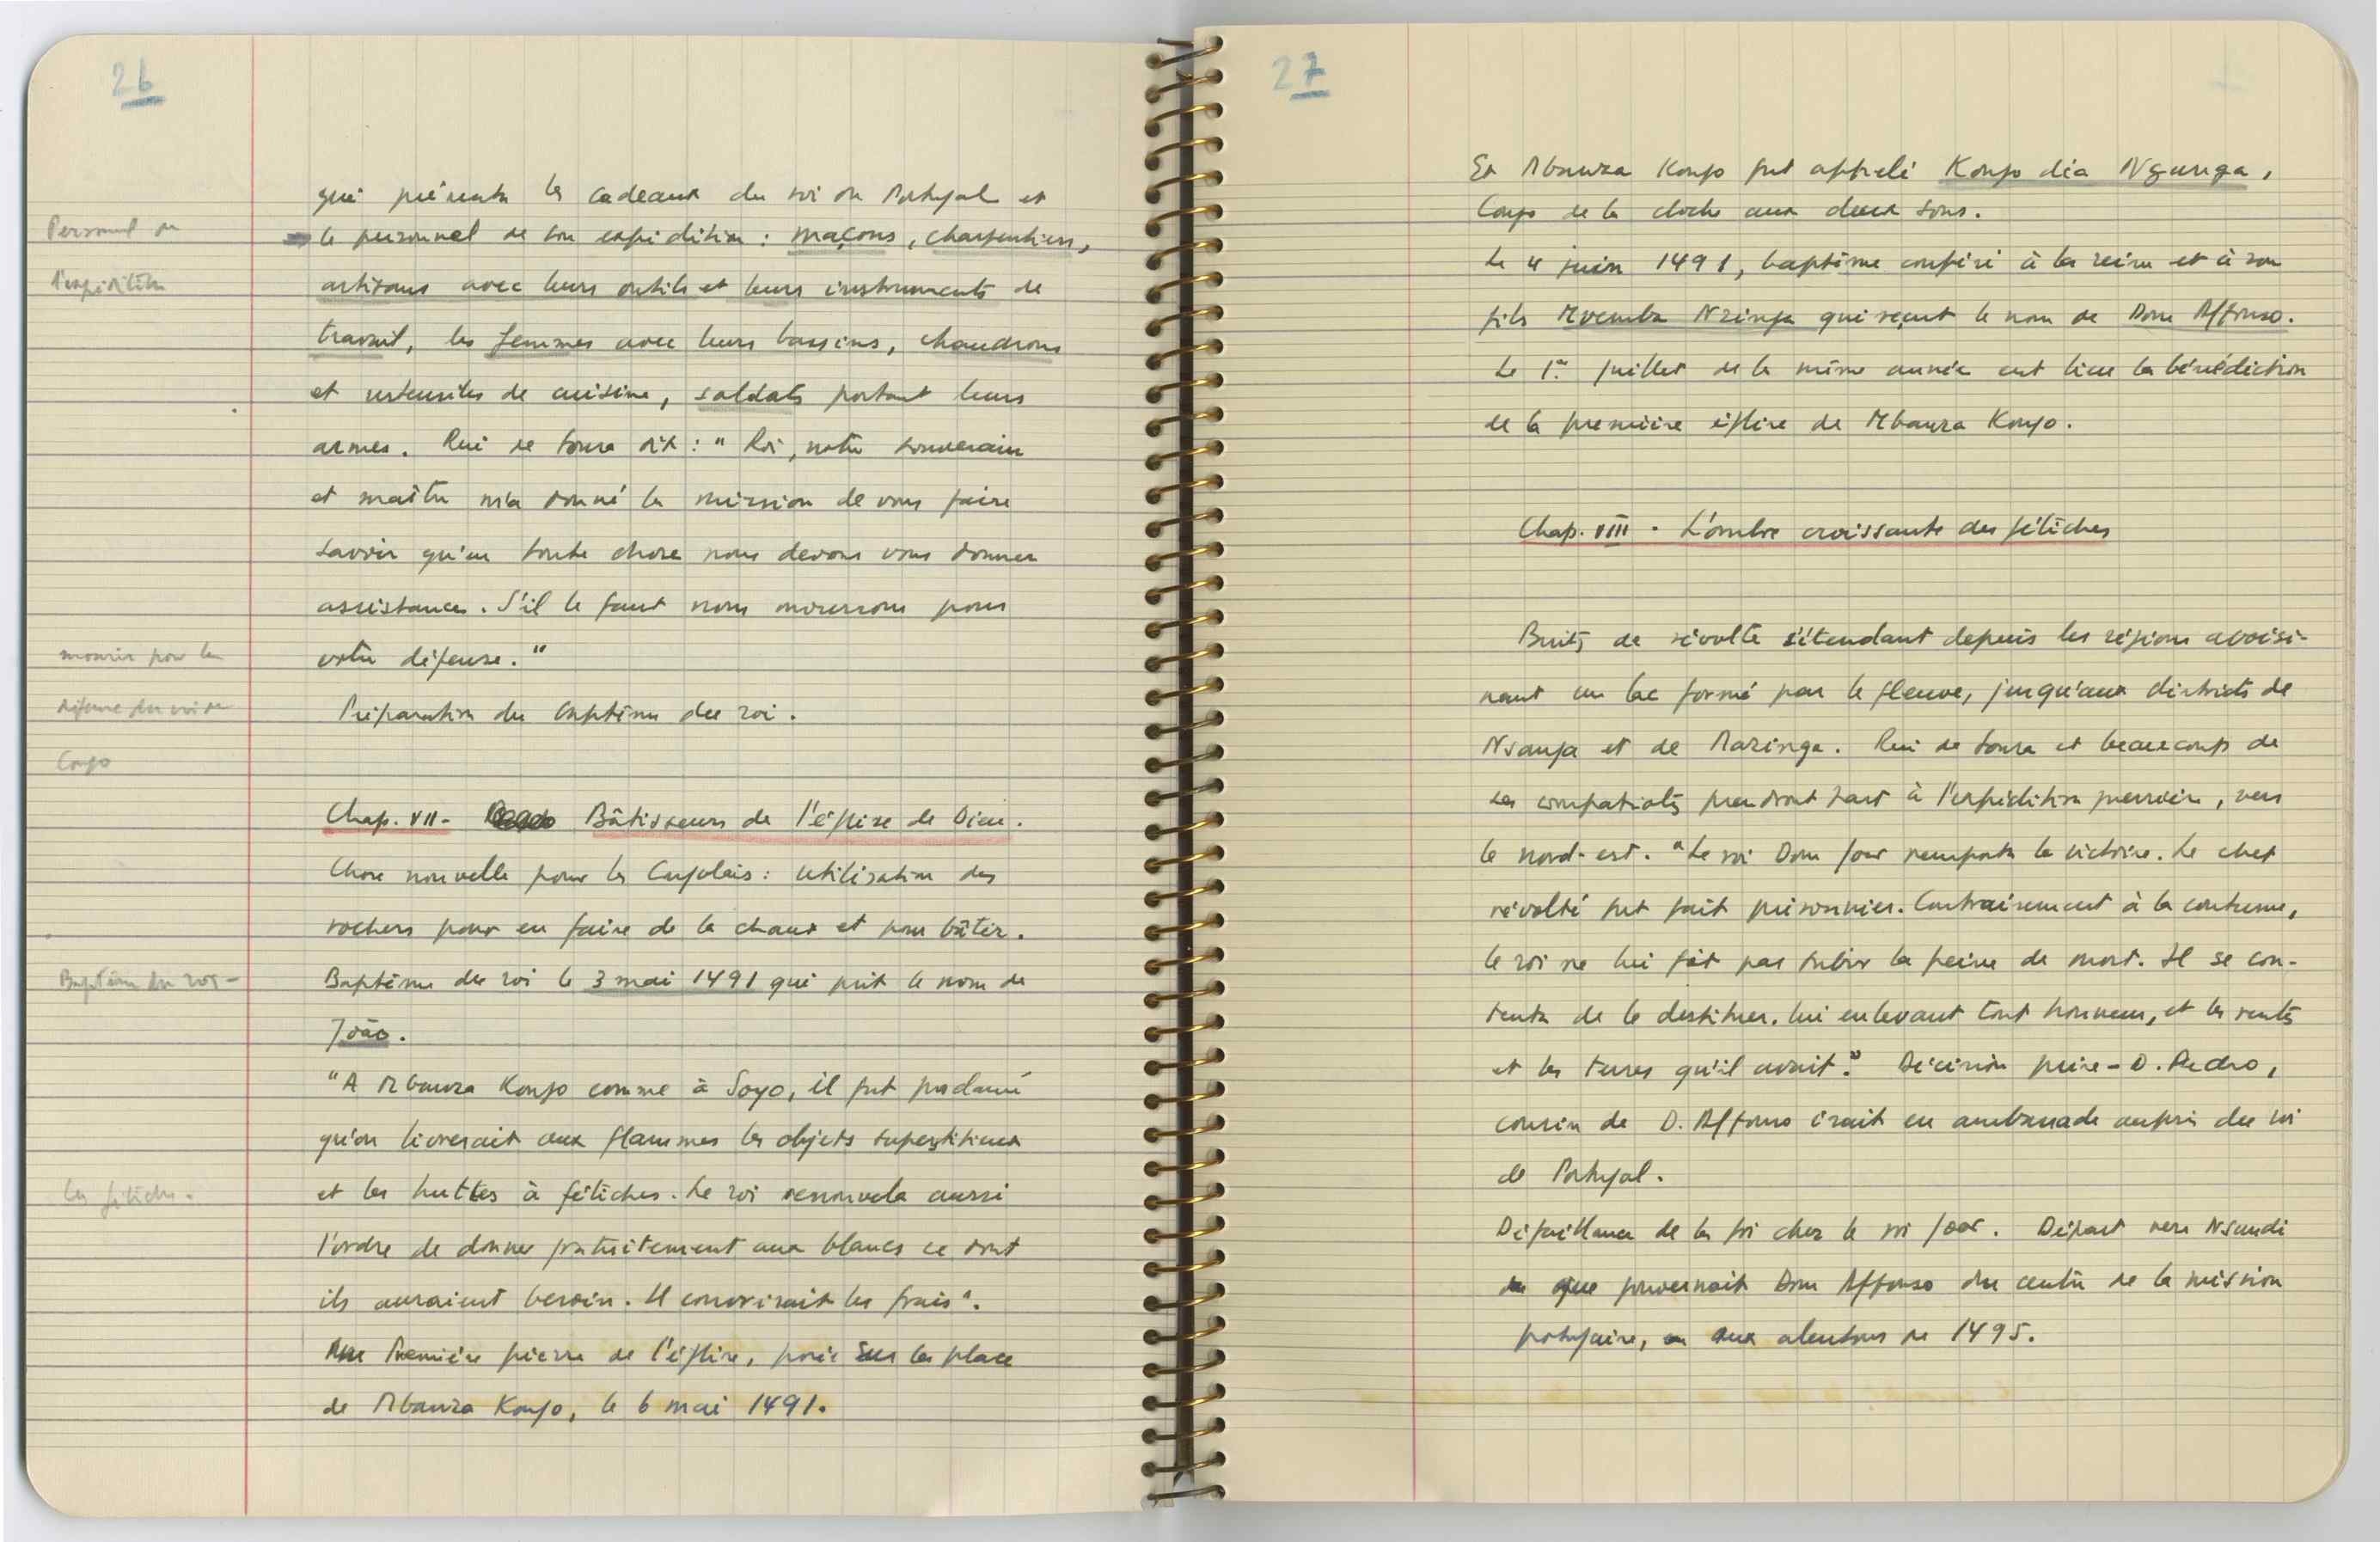 26
Personnel de
l'expédition
qui présenta les cadeaux du roi de Portugal et
le personnel de son expédition : maçons, charpentiers,
artisans avec leurs outils et leurs instruments de
travail, les femmes avec leurs bassins, chaudrons
et ustensiles de cuisine, soldats portant leurs
armes. Rui de Sousa dit : " Roi, notre souverain
et maître m'a donné la mission de vous faire
savoir qu'en toute chose nous devons vous donner
assistance. S'il le faut nous mourrons pour
votre défense. "
mourir pour la
défense du roi de
Congo
Préparation du baptême du roi.
Chap. VII - Bâtisseurs de l'église de Dieu.
Chose nouvelle pour les Congolais : utilisation des
rochers pour en faire de la chaux et pour bâtir.
Baptême du roi -
Baptême du roi le 3 mai 1491 qui prit le nom de
João.
"A Mbanza Kongo comme à Soyo, il fut proclamé
qu'on livrerait aux flammes les objets superstitieux
les fétiches -
et les huttes à fétiches. Le roi renouvela aussi
l'ordre de donner gratuitement aux blancs ce dont
ils auraient besoin. Il couvrirait les frais".
Première pierre de l'église, posée sur la place
de Mbanza Kongo, le 6 mai 1491.
27
Et Mbanza Kongo fut appelé Kongo dia Ngunga,
Congo de la cloche aux deux sons.
Le 4 juin 1491, baptême conféré à la reine et à son
fils Mvemba Nzinga qui reçut le nom de Dom Affonso.
Le 1er juillet de la même année eut lieu la bénédiction
de la première église de Mbanza Kongo.
Chap. VIII - L'ombre croissante des fétiches
Bruits de révolte s'étendant depuis les régions avoisi-
nant un lac formé par le fleuve, jusqu'aux districts de
Nsanga et de Mazinga. Rui de Sousa et beaucoup de
ses compatriotes prendront part à l'expédition guerrière, vers
le nord-est. "Le roi Dom João remporta la victoire. Le chef
révolté fut fait prisonnier. Contrairement à la coutume,
le roi ne lui fit pas subir la peine de mort. Il se con-
tenta de le destituer, lui enlevant tout honneur, et les rentes
et les terres qu'il avait." Décision prise - D. Pedro,
cousin de D. Affonso irait en ambassade auprès du roi
de Portugal.
Défaillance de la foi chez le roi João. Départ vers Nsundi
que gouvernait Dom Affonso du centre de la mission
portugaise, aux alentours de 1495.